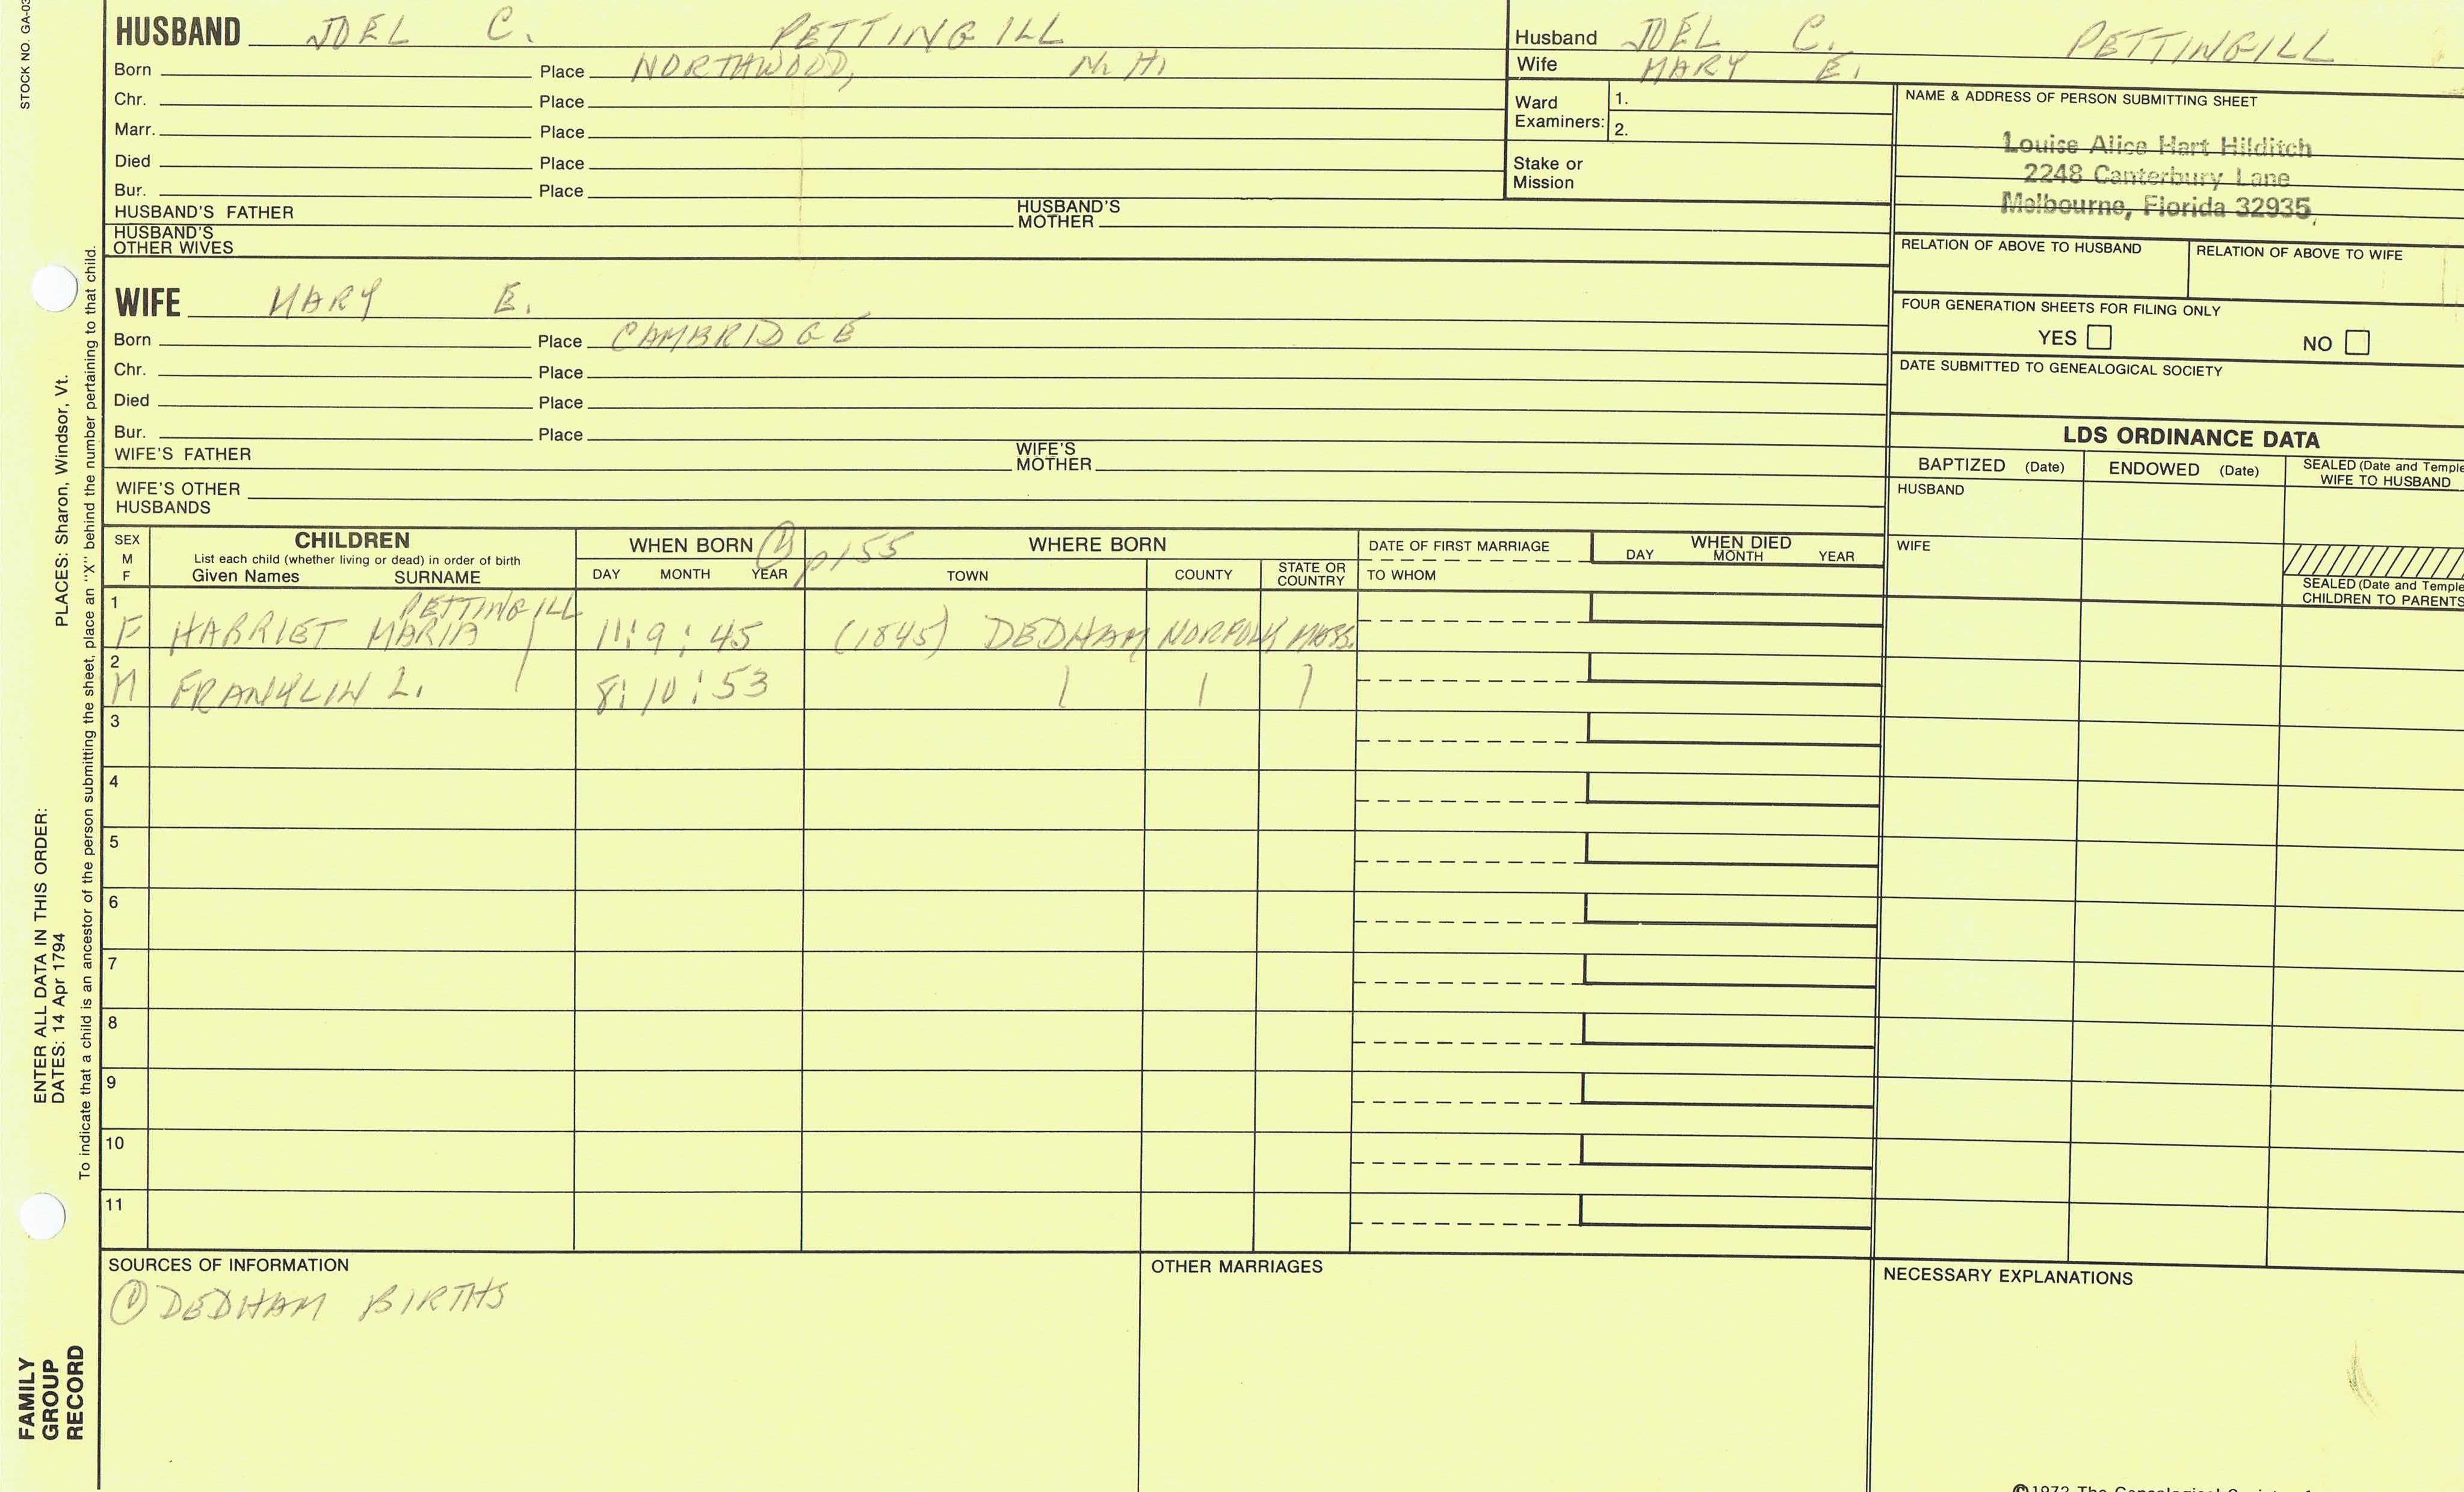 STOCK NO. GA-03
HUSBAND JOEL C. PETTINGILL
Born Place NORTHWOOD, N. H.
Chr. Place
Marr. Place
Died Place
Bur. Place
HUSBAND'S FATHER HUSBAND'S MOTHER
HUSBAND'S OTHER WIVES
Husband JOEL C. PETTINGILL
Wife MARY E.
Ward Examiners: 1.
2.
Stake or Mission
NAME & ADDRESS OF PERSON SUBMITTING SHEET
Louise Alice Hart Hilditch
2248 Canterbury Lane
Melbourne, Florida 32935
RELATION OF ABOVE TO HUSBAND RELATION OF ABOVE TO WIFE
FOUR GENERATION SHEETS FOR FILING ONLY
YES NO
DATE SUBMITTED TO GENEALOGICAL SOCIETY
WIFE MARY E.
Born Place CAMBRIDGE
Chr. Place
Died Place
Bur. Place
WIFE'S FATHER WIFE'S MOTHER
WIFE'S OTHER HUSBANDS
LDS ORDINANCE DATA
BAPTIZED (Date) ENDOWED (Date) SEALED (Date and Temple
WIFE TO HUSBAND
HUSBAND
WIFE
SEALED (Date and Temple
CHILDREN TO PARENTS
SEX
M
F
CHILDREN
List each child (whether living or dead) in order of birth
Given Names SURNAME
WHEN BORN ① p155
DAY MONTH YEAR
WHERE BORN
TOWN COUNTY STATE OR COUNTRY
DATE OF FIRST MARRIAGE
TO WHOM
WHEN DIED
DAY MONTH YEAR
PETTINGILL
1 F HARRIET MARIA 11:9:45 (1845) DEDHAM NORFOLK MASS.
2 M FRANKLIN L. 8:10:53
3
4
5
6
7
8
9
10
11
SOURCES OF INFORMATION
① DEDHAM BIRTHS
OTHER MARRIAGES
NECESSARY EXPLANATIONS
ENTER ALL DATA IN THIS ORDER:
DATES: 14 Apr 1794 PLACES: Sharon, Windsor, Vt.
To indicate that a child is an ancestor of the person submitting the sheet, place an "X" behind the number pertaining to that child.
FAMILY
GROUP
RECORD